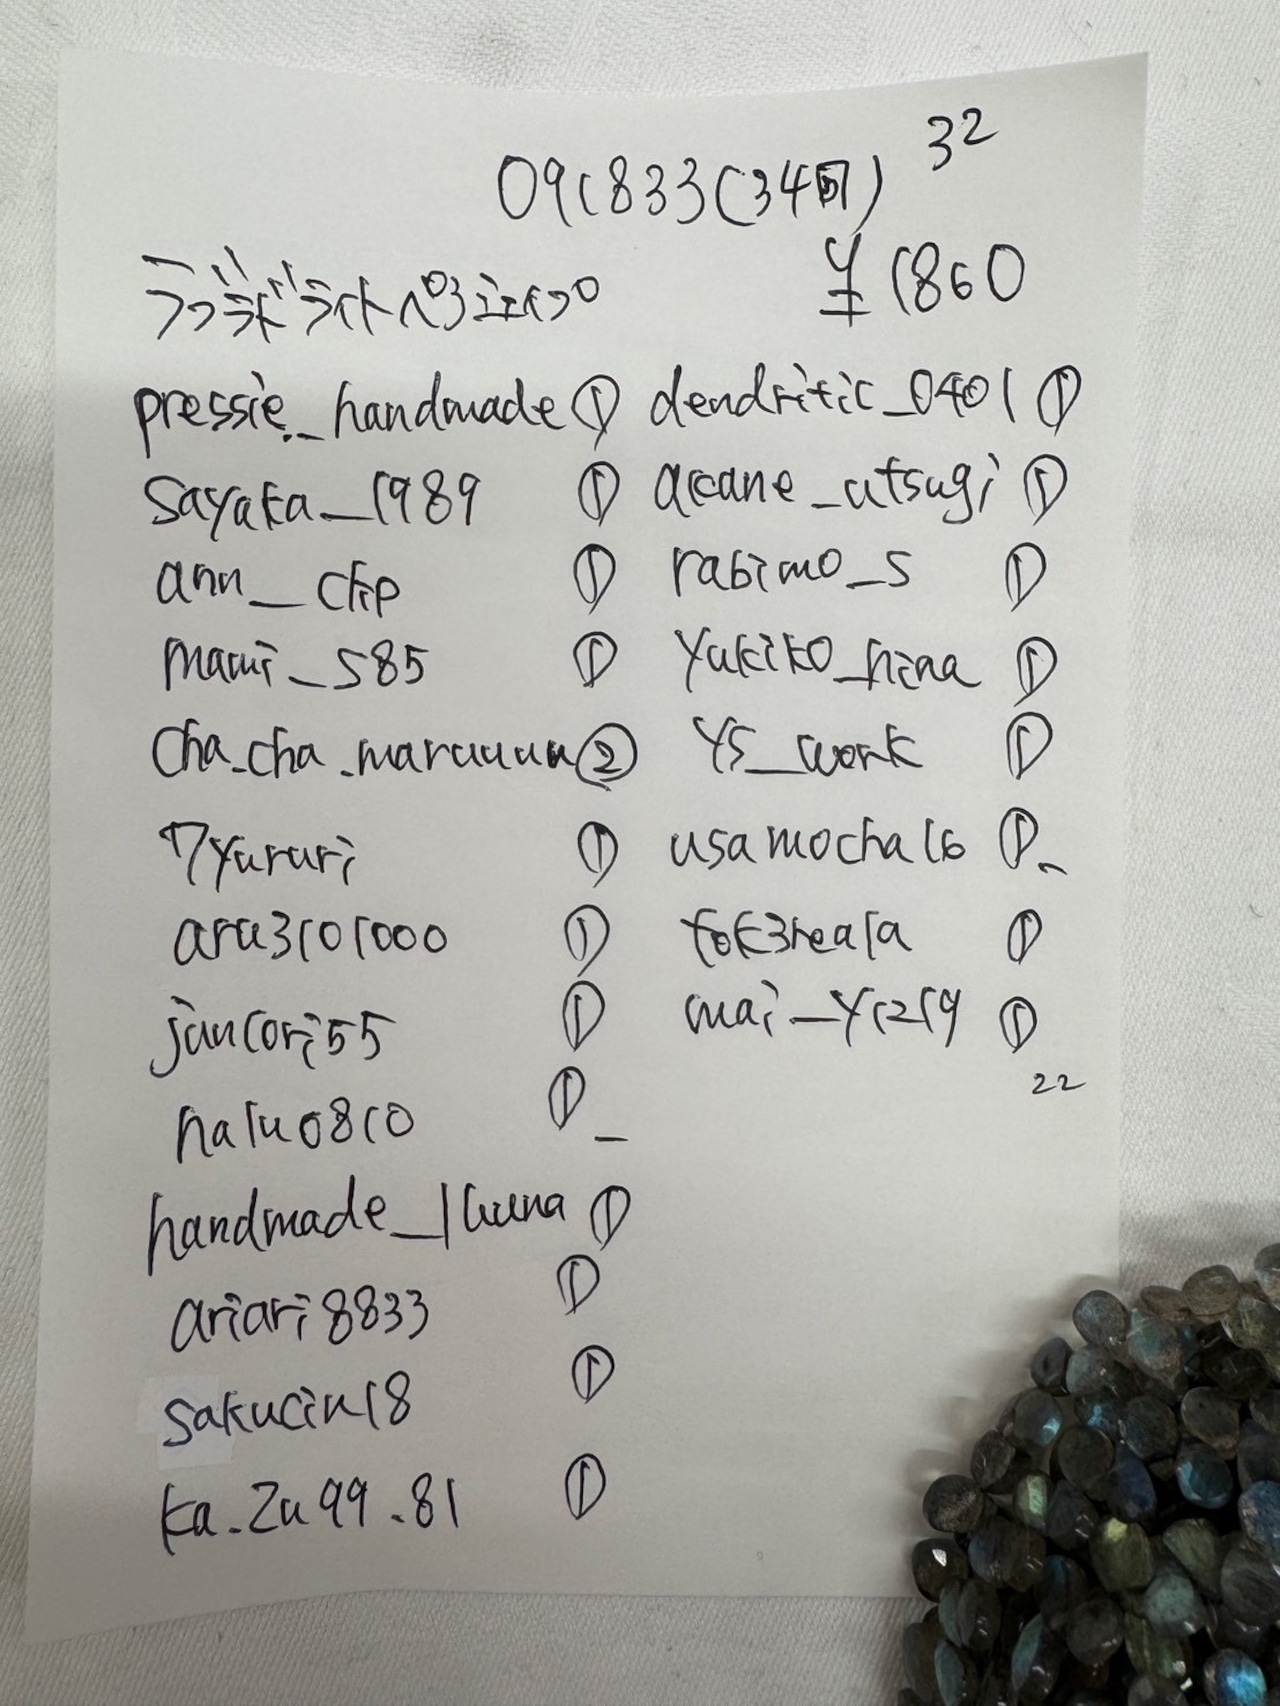 32
091833(34回)
ラブラドライトペアシェイプ
¥1860
pressie._handmade ①
sayaka_1989 ①
ann__chip ①
mami_s85 ①
cha_cha.maruuuu ②
7yururi ①
aru3101000 ①
juncori55 ①
halu0810 ①
handmade_luuna ①
ariari8833 ①
sakucin18 ①
ka.zu99.81 ①
dendritic_0401 ①
akane_utsugi ①
rabimo_s ①
yukiko_hina ①
ys__work ①
usamocha16 ①
mai_y1219 ①
22